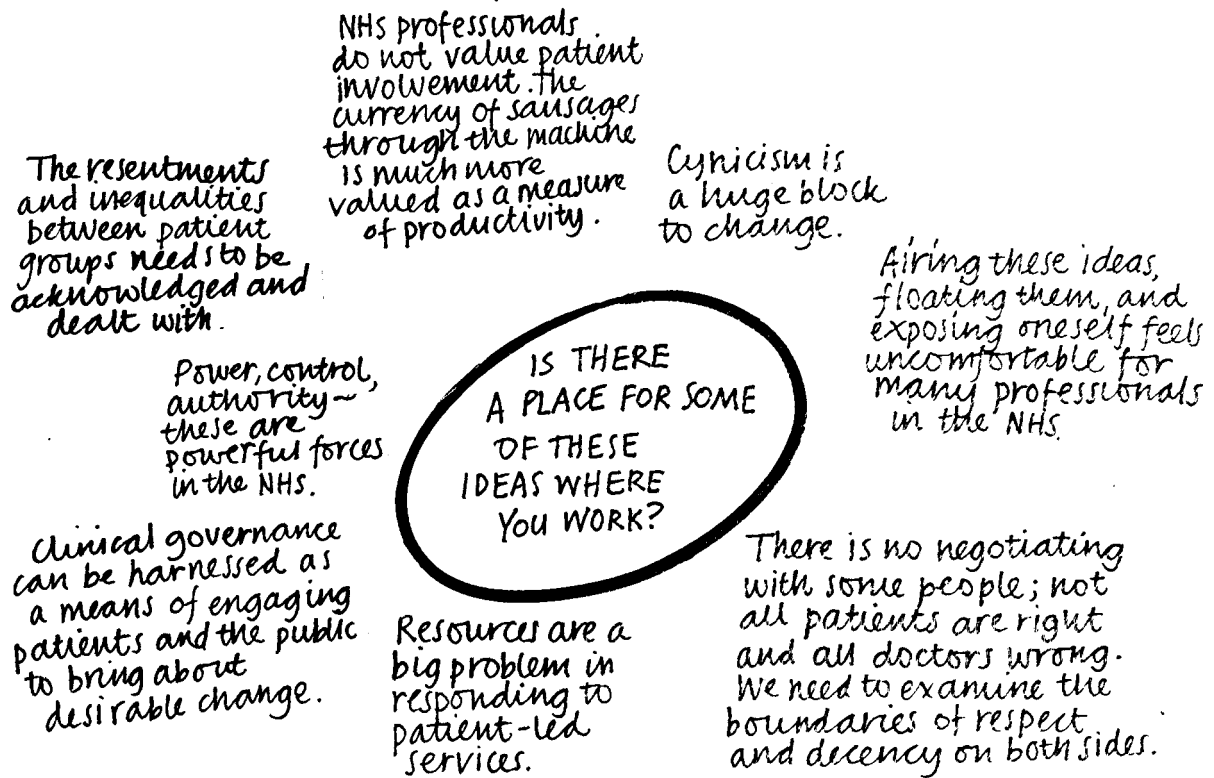 NHS professionals
do not value patient
involvement. The
currency of sausages
through the machine
is much more
valued as a measure
of productivity.
Cynicism is
a huge block
to change.
The resentments
and inequalities
between patient
groups needs to be
acknowledged and
dealt with.
Airing these ideas,
floating them, and
exposing oneself feels
uncomfortable for
many professionals
in the NHS.
IS THERE
A PLACE FOR SOME
OF THESE
IDEAS WHERE
YOU WORK?
Power, control,
authority~
these are
powerful forces
in the NHS.
Clinical governance
can be harnessed as
a means of engaging
patients and the public
to bring about
desirable change.
Resources are a
big problem in
responding to
patient-led
services.
There is no negotiating
with some people; not
all patients are right
and all doctors wrong.
We need to examine the
boundaries of respect
and decency on both sides.